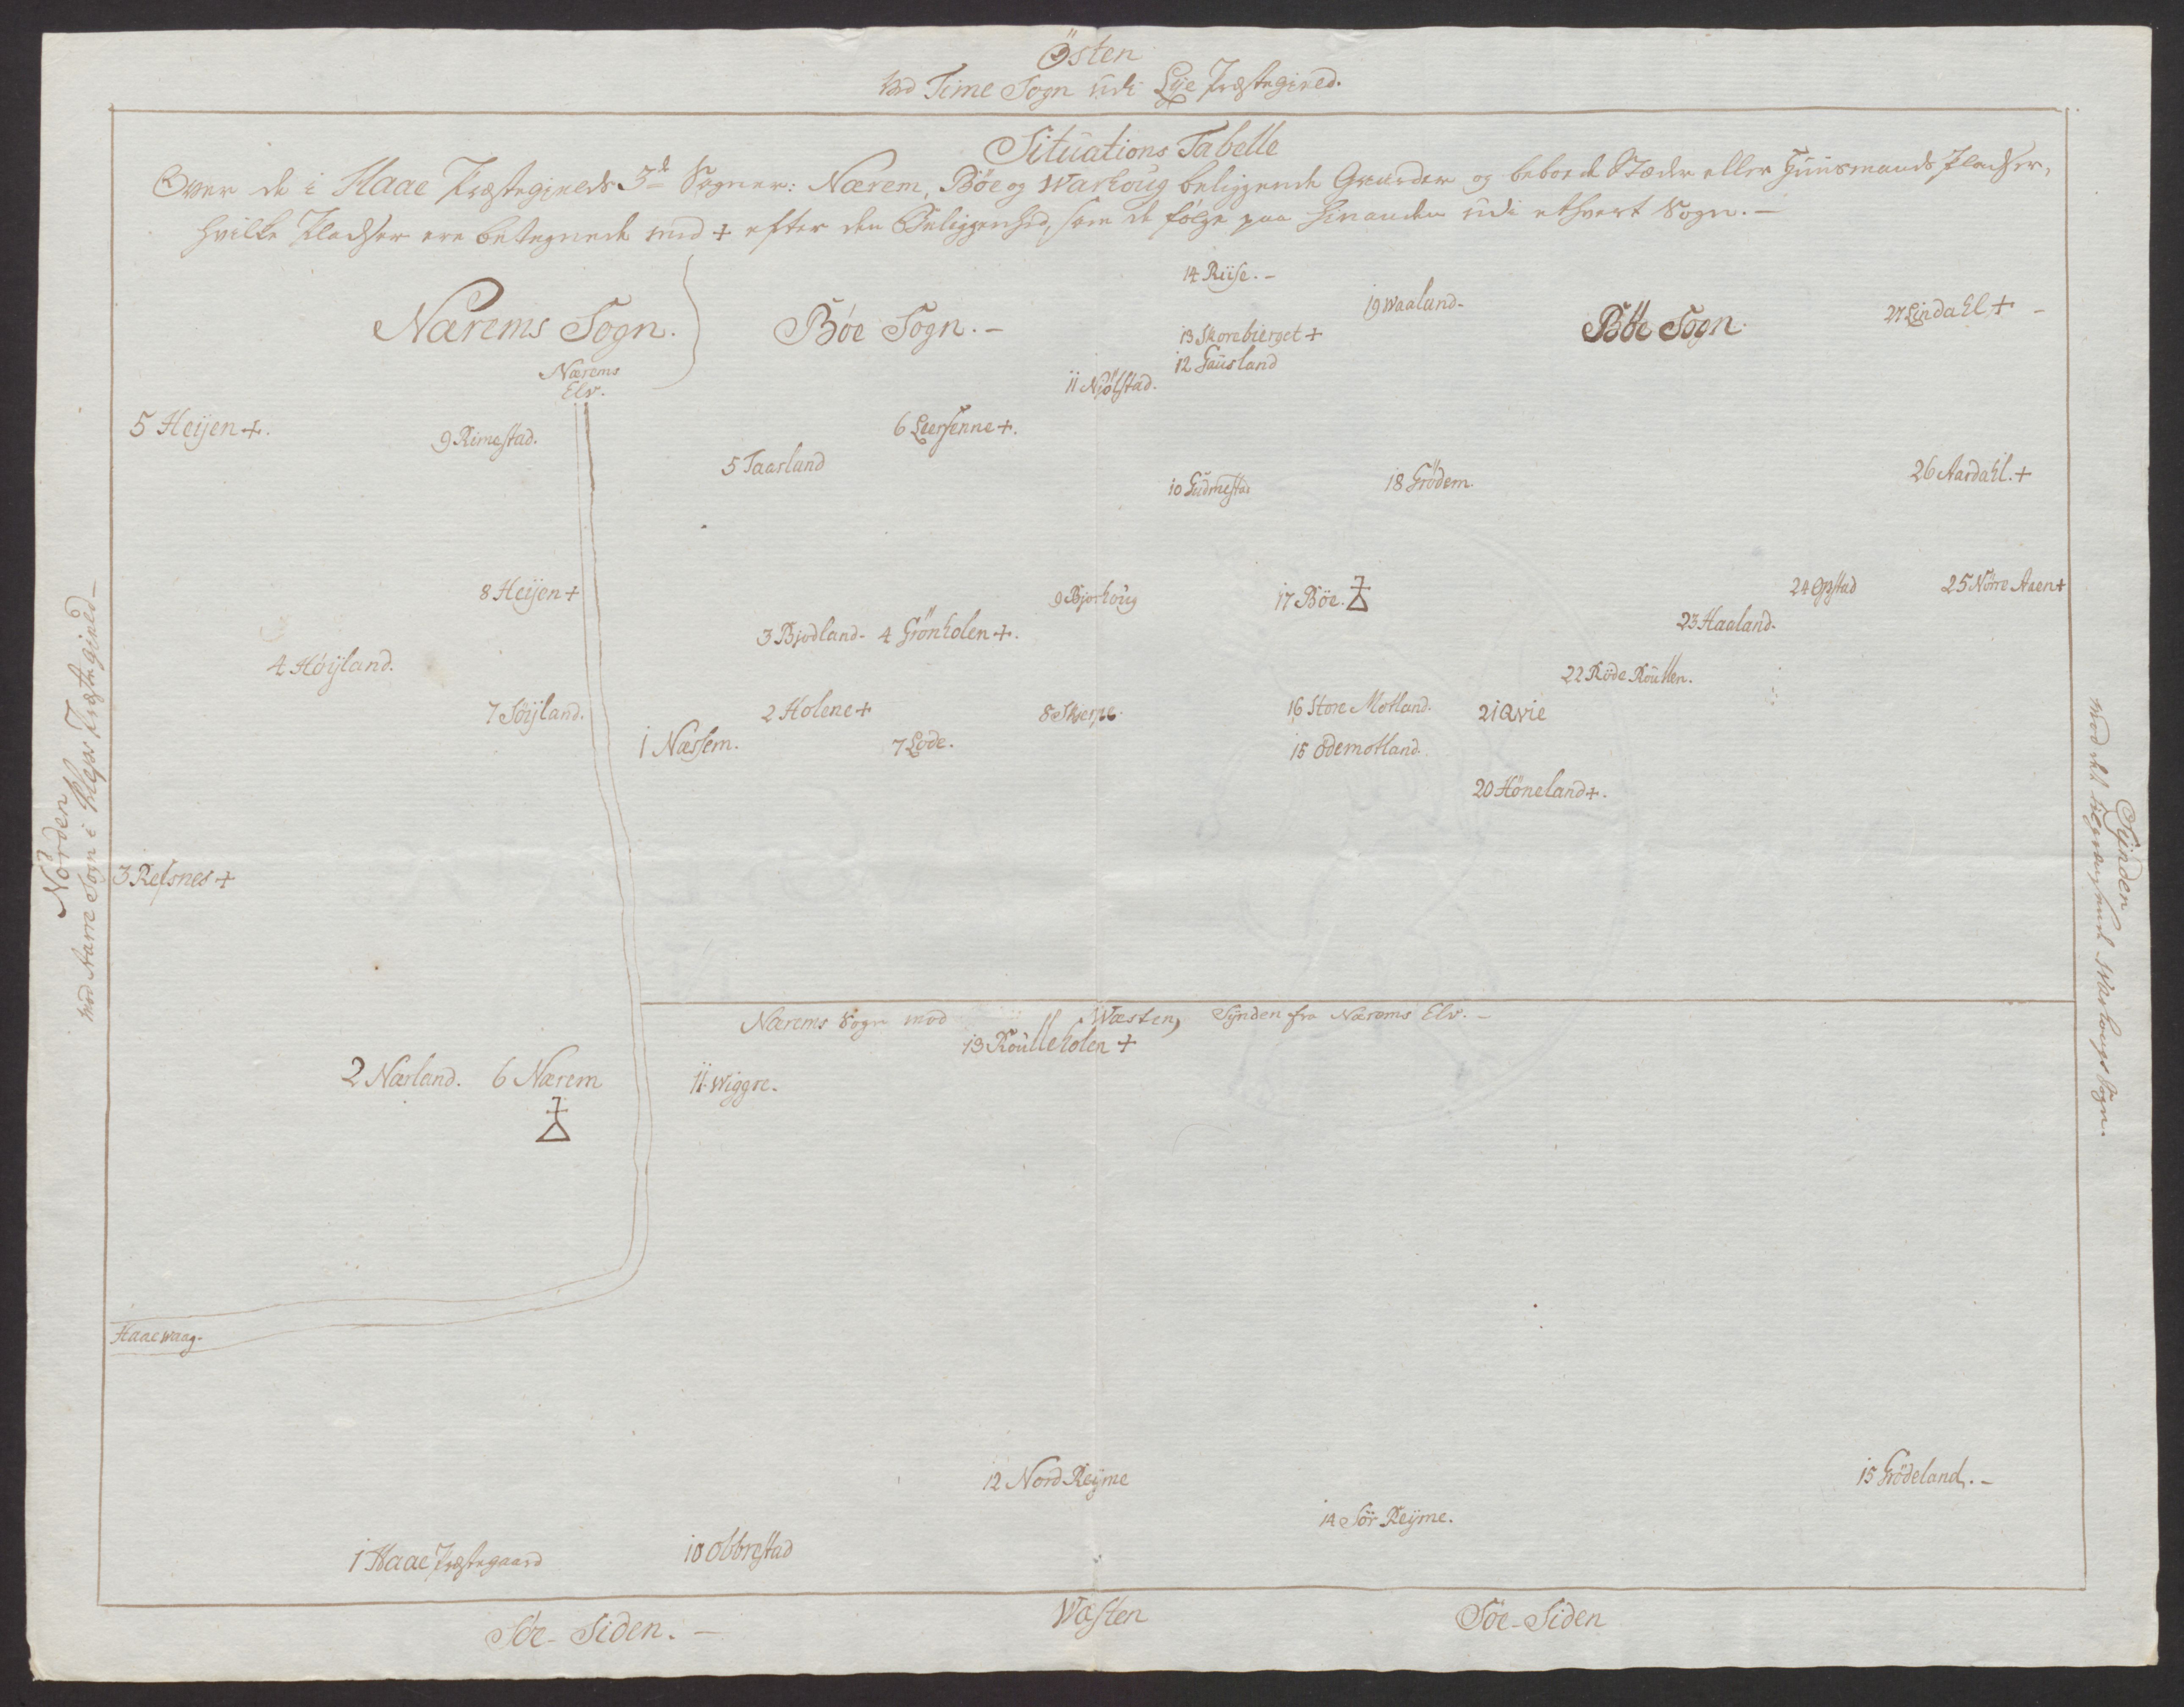 Östen
Ved Time Sogn udi Lye Præstegield.
Situations Tabelle
Over de i Haae Præstegields 3de Sogner: Nærem, Böe og Warhoug beliggende Gaarder og beboede Stæder eller Huusmands Pladser,
hvilke Pladser ere betegnede med + efter den Beliggenhed, som de følge paa hinanden udi ethvert Sogn.—
14 Riise.–
Nærems Sogn.
Böe Sogn.–
19 Waaland-
Böe Sogn.
27 Lindahl + –
13 Skorebierget +
12 Gausland
Nærems
Elv.
11 Niölstad.
5 Heijen +.
9 Rimestad.
6 Leersenne +.
5 Taarland
10 Gudmestad
18 Grödem.
26 Aardahl. +
8 Heijen +
9 Bjorhoug
17 Böe.
24 Opstad
25 Nörre Aaen +
3 Bjodland-
4 Grönholen +.
23 Haaland.
4 Höijland.
22 Röde Köutlen.
7 Söijland.
2 Holene +
8 Skerpe.
16 Store Motland.
21 Qvie
1 Nærsem.
7 Lode.
15 Ödemotland.
20 Höneland +.
3 Refsnes +
Nærems Sogn mod Wæsten, Synden fra Nærems Elv.–
13 Koulleholen +
2 Nærland.
6 Nærem
11 Wiggre.
Haaewaag.
12 Nord Reijme
15 Grödeland.–
14 Sör Reijme.
1 Haae Præstegaard
10 Obbrestad
Söe-Siden.–
Wæsten
Söe-Siden
Norden
mod Aarre Sogn i Kleps Præstegield–
Synden
mod det tilgrændsende Warhougs Sogn.